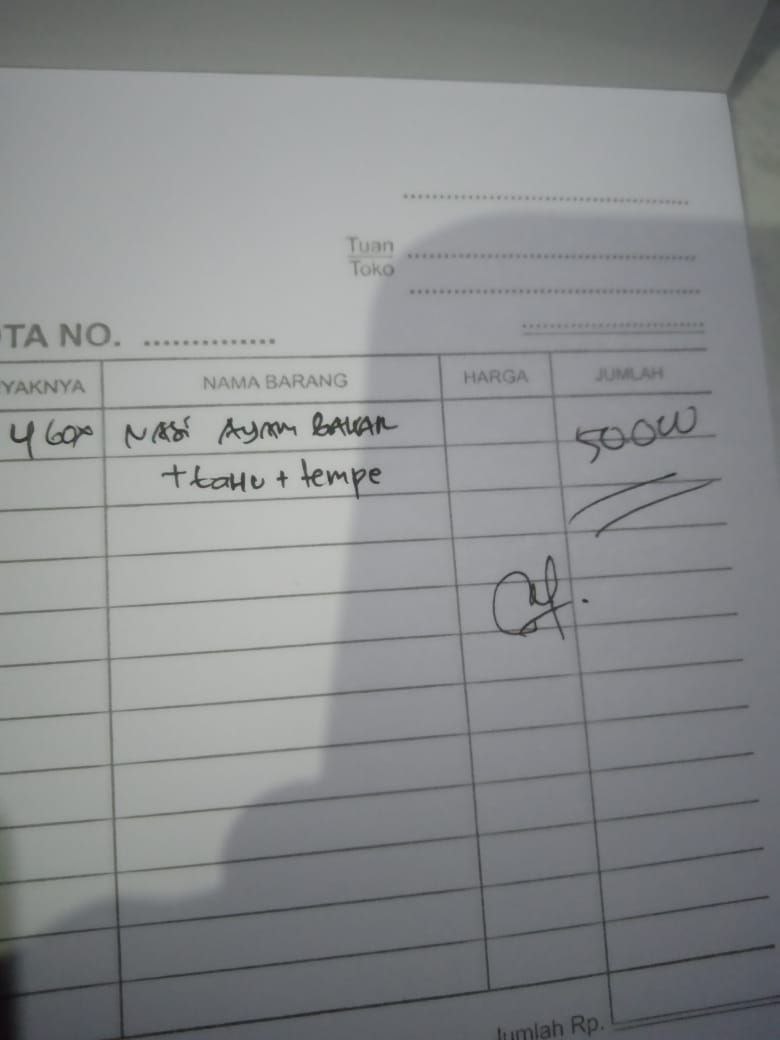 Tuan
Toko
TA NO.
YAKNYA NAMA BARANG HARGA JUMLAH
4 Box NASi AYAM BAKAR 50000
+ tahu + tempe
Jumlah Rp.